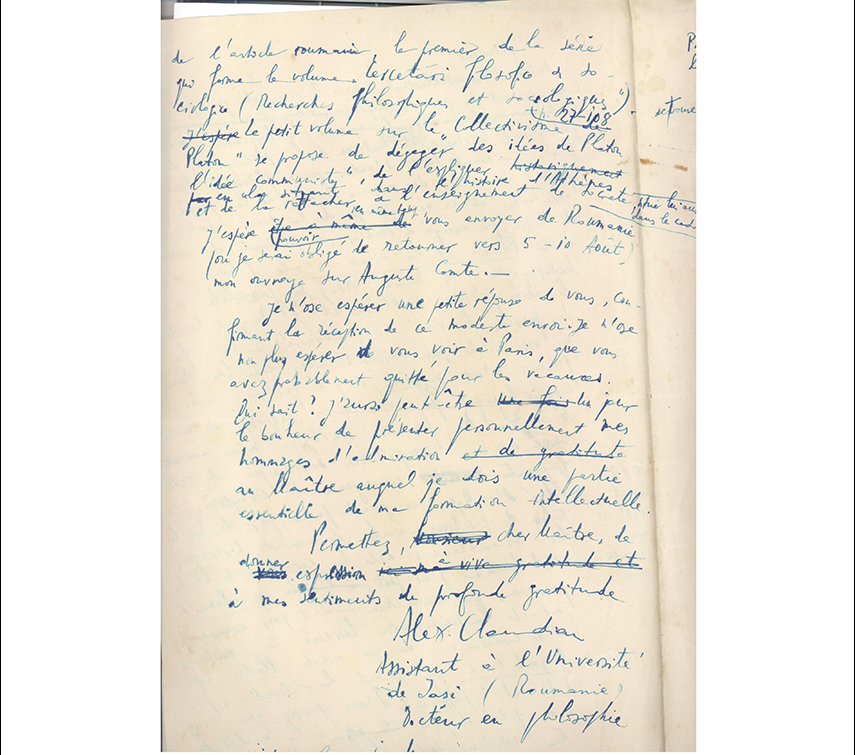 de l'article roumain, le premier de la série
qui forme le volume „Cercetări filosofice și so-
ciologice (Recherches philosophiques et sociologiques")
(p. 27-108
J'espère le petit volume sur le „Collectivisme de
Platon" se propose de dégager des idées de Platon
l'idée „communiste", de l'expliquer historiquement
par en la situant dans l'histoire d'Athènes
et de la rattacher à l'enseignement de Socrate,
en même temps
J'espère être à même de vous envoyer de Roumanie
pouvoir
(où je serai obligé de retourner vers 5-10 Août)
mon ouvrage sur Auguste Comte.—
Je n'ose espérer une petite réponse de vous, con-
firmant la réception de ce modeste envoi. Je n'ose
non plus espérer de vous voir à Paris, que vous
avez probablement quitté pour les vacances.
Qui sait? J'aurai peut-être une fois un jour
le bonheur de présenter personnellement mes
hommages d'admiration et de gratitude
au Maître auquel je dois une partie
essentielle de ma formation intellectuelle.
Permettez, Monsieur cher Maître, de
donner
vous expression ici ma vive gratitude et
à mes sentiments de profonde gratitude
Alex. Claudian
Assistant à l'Université
de Iasi (Roumanie)
Docteur en philosophie